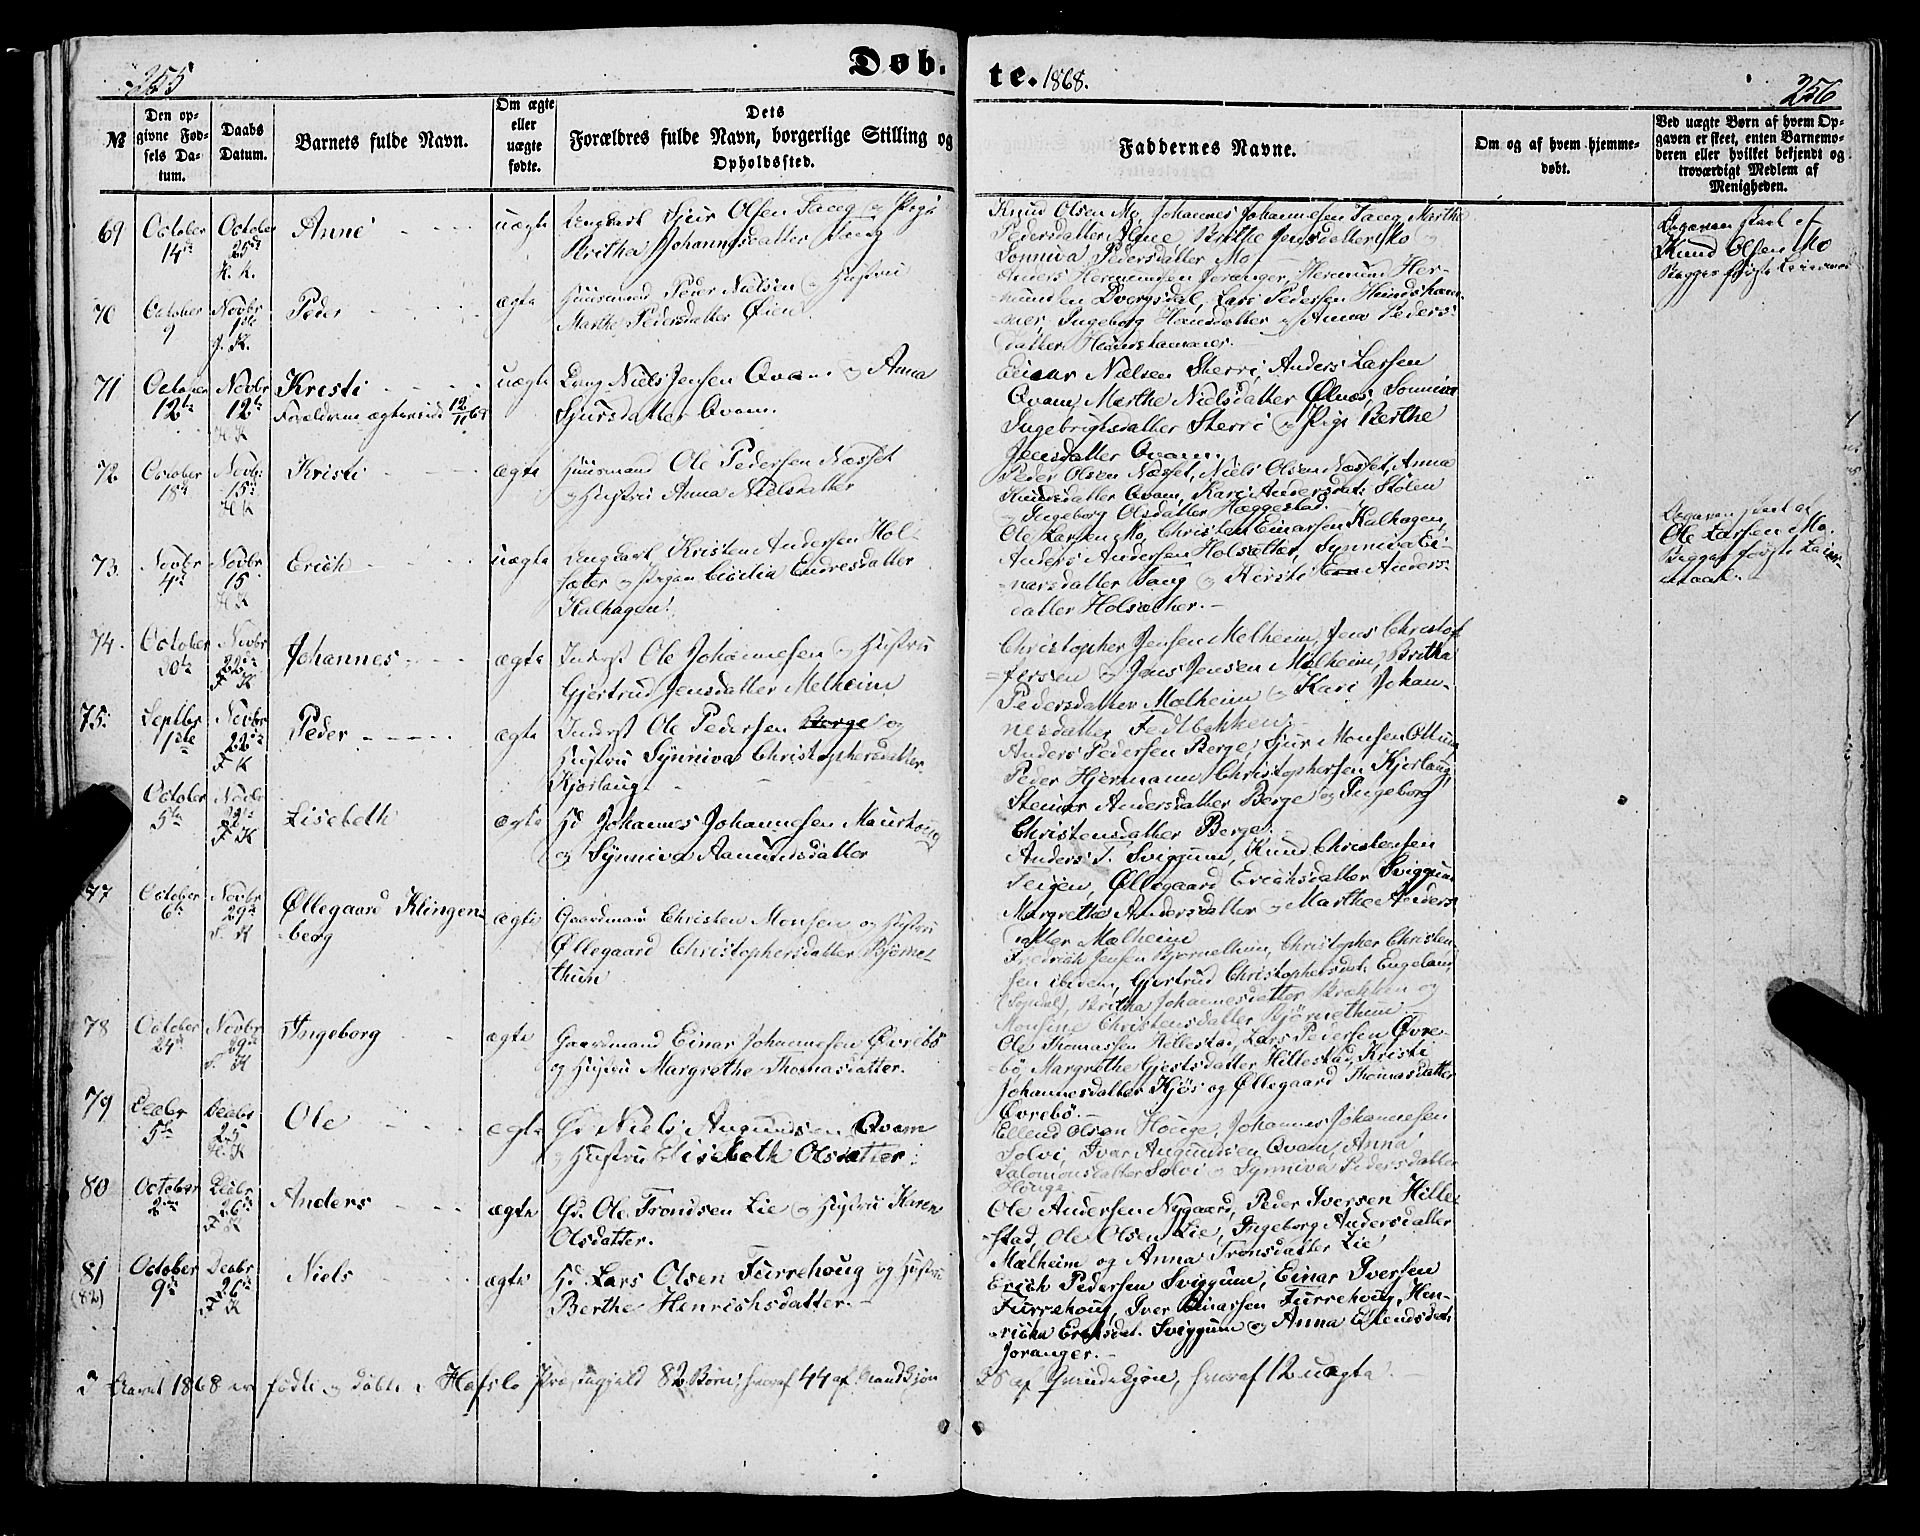 255
Døb-
te. 1868.
256
№
Den op-
givne Fød-
sels Da-
tum.
Daabs
Datum.
Barnets fulde Navn.
Om ægte
eller
uægte
fødte.
Dets
Forældres fulde Navn, borgerlige Stilling og
Opholdssted.
Faddernes Navne.
Om og af hvem hjemme-
døbt.
Ved uægte Børn af hvem Op-
gaven er skeet, enten Barnemo-
deren eller hvilket bekjendt og
troværdigt Medlem af
Menigheden.
69
October
14de
October
25de
H. K.
Anne
uægte
Ungkarl Sjur Olsen og Pige
Britha Johannesdatter
Knud Olsen Mo, Johannes Johannesen Marthe
Pedersdatter Britha Jensdatter Mo og
Sonniva Pedersdatter Mo
Opgaven skeet af
Knud Olsen Mo
Begges første Leiermaal
70
October
9
Novbr
1ste
J. K.
Peder
ægte
Huusmand Peder Nielsen og Hustru
Marthe Pedersdatter Øien.
Anders Hermundsen Joranger, Hermund Her-
mundsen Dvergsdal, Lars Pedersen Hundsham-
mer, Ingeborg Hansdatter og Anna Peders-
datter Hundshammer.
71
October
12te
Novbr
12te
H K
Kristi
Forældrene ægteviede 12/11 6
uægte
Drng Niels Jensen Qvam og Anna
Sjursdatter Qvam.
Einar Nielsen Sterri, Anders Larsen
Qvam, Marthe Nielsdatter Ølnæs, Sonniva
Ingebrigtsdatter Sterri og Pige Berthe
Jensdatter Qvam.
72
October
18de
Novbr
15de
H K
Kristi
ægte
Huusmand Ole Pedersen Næsset
og Hustru Anna Nielsdatter
Peder Olsen Næsset, Niels Olsen Næsset, Anna
Knudsdatter Qvam, Kari Andersdat: Stølen
og Ingeborg Olsdatter Hæggestad.
73.
Novbr
4de
Novbr
15
H K
Erich
uægte
Ungkarl Kristen Andersen Hol-
sæter og Pigen Cicilia Endresdatter
Kalhagen.
Ole Larsen Mo, Christen Einarsen Kalhagen,
Anders Andersen Holsæter, Synniva Ei-
narsdatter og Kristi Anders-
datter Holsæther.
Opgaven skeet af
Ole Larsen Mo.
Begges første Leier-
maal.
74.
October
20de
Novbr
22de
F K
Johannes
ægte
Inderst Ole Johannesen og Hustru
Gjertrud Jensdatter Melheim
Christopher Jensen Melheim, Jens Christof-
fersen og Jens Jensen Mælheim, Britha
Pedersdatter Mælheim og Kari Johan-
nesdatter Fedtbekken.
75.
Septbr
11te
Novbr
22de
F K
Peder
ægte
Inderst Ole Pedersen Berge og
Hustru Synniva Christophersdatter
Kjørlaug
Anders Pedersen Berge, Sjur Monsen Ottum
Peder Hjermann Christophersen Kjørlaug,
Steinar Andersdatter Berge og Ingeborg
Christensdatter Berge.
October
5te
Novbr
22de
F K
Lisebeth
ægte
Hd Johannes Johannesen Maurhoug
og Synniva Aamundsdatter
Anders T. Sviggum, Knud Christensen
Teigen, Øllegaard Erichsdatter Sviggum
Margrethe Andersdatter og Marthe Anders-
datter Mælheim
77
October
6te
Novbr
29de
S. K
Øllegaard Klingen-
berg
ægte
Gaardmand Christen Monsen og Hustru
Øllegaard Christophersdatter Bjørne-
thun
Fredrich Jensen Bjørnethun, Christopher Christen-
sen ibidem, Gjertrud Christophersdat: Engeland
(Sogndal), Britha Johannesdatter Brækken og
Monsine Christensdatter Bjørnethun
78
October
24de
Novbr
29de
S. K
Ingeborg
ægte
Gaardmand Einar Johannesen Øvrebø
og Hustru Margrethe Thomasdatter.
Ole Thomassen Hillestad, Lars Pedersen Øvre-
bø, Margrethe Gjertsdatter Hillestad, Kristi
Johannesdatter Kjøs og Øllegaard Thomasdatter
Øvrebø.
79
Decbr
5te
Decbr
25
H. K
Ole
ægte
Gd Niels Augundsen Qvam
og Hustru Elisebeth Olsdatter.
Ellend Olsen Houge, Johannes Johannesen
Solvi, Ivar Augundsen Qvam, Anna
Salomonsdatter Solvi og Synniva Pedersdatter
Houge
80
October
2den
Decbr
26de
F K
Anders
ægte
Gd. Ole Trondsen Lie og Hustru Karen
Olsdatter.
Ole Andersen Nygaard, Peder Iversen Hille-
stad, Ole Olsen Lie, Ingeborg Andersdatter
Mælheim og Anna Tronsdatter Lie
81
(82)
October
9de
Decbr
26de
F K
Niels
ægte
Hd Lars Olsen Furrehoug og Hustru
Berthe Henrichsdatter.
Erich Pedersen Sviggum, Einar Iversen
Furrehoug, Iver Einarsen Furrehoug, Hen-
richa Ericksdat. Sviggum og Anna Ellendsdat:
Joranger.
I Aaret 1868 er fødte og døbte i Hafslo Præstegjæld 82 Børn, hvoraf 44 af Mandkjøn
38 af Qvindekjøn, hvoraf 12 uægte.